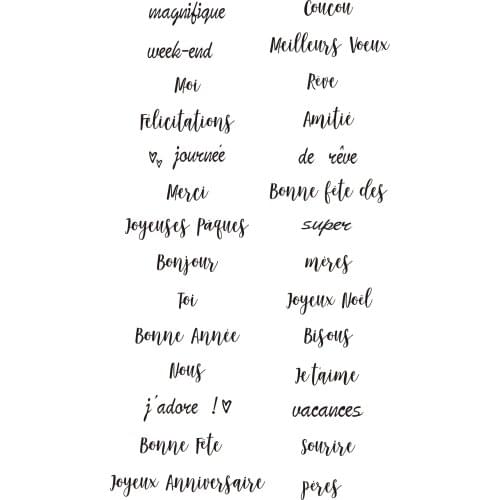 magnifique
week-end
Moi
Félicitations
journée
Merci
Joyeuses Pâques
Bonjour
Toi
Bonne Année
Nous
j'adore !
Bonne Fête
Joyeux Anniversaire
Coucou
Meilleurs Voeux
Rêve
Amitié
de rêve
Bonne fête des
super
mères
Joyeux Noël
Bisous
Je t'aime
vacances
Sourire
pères